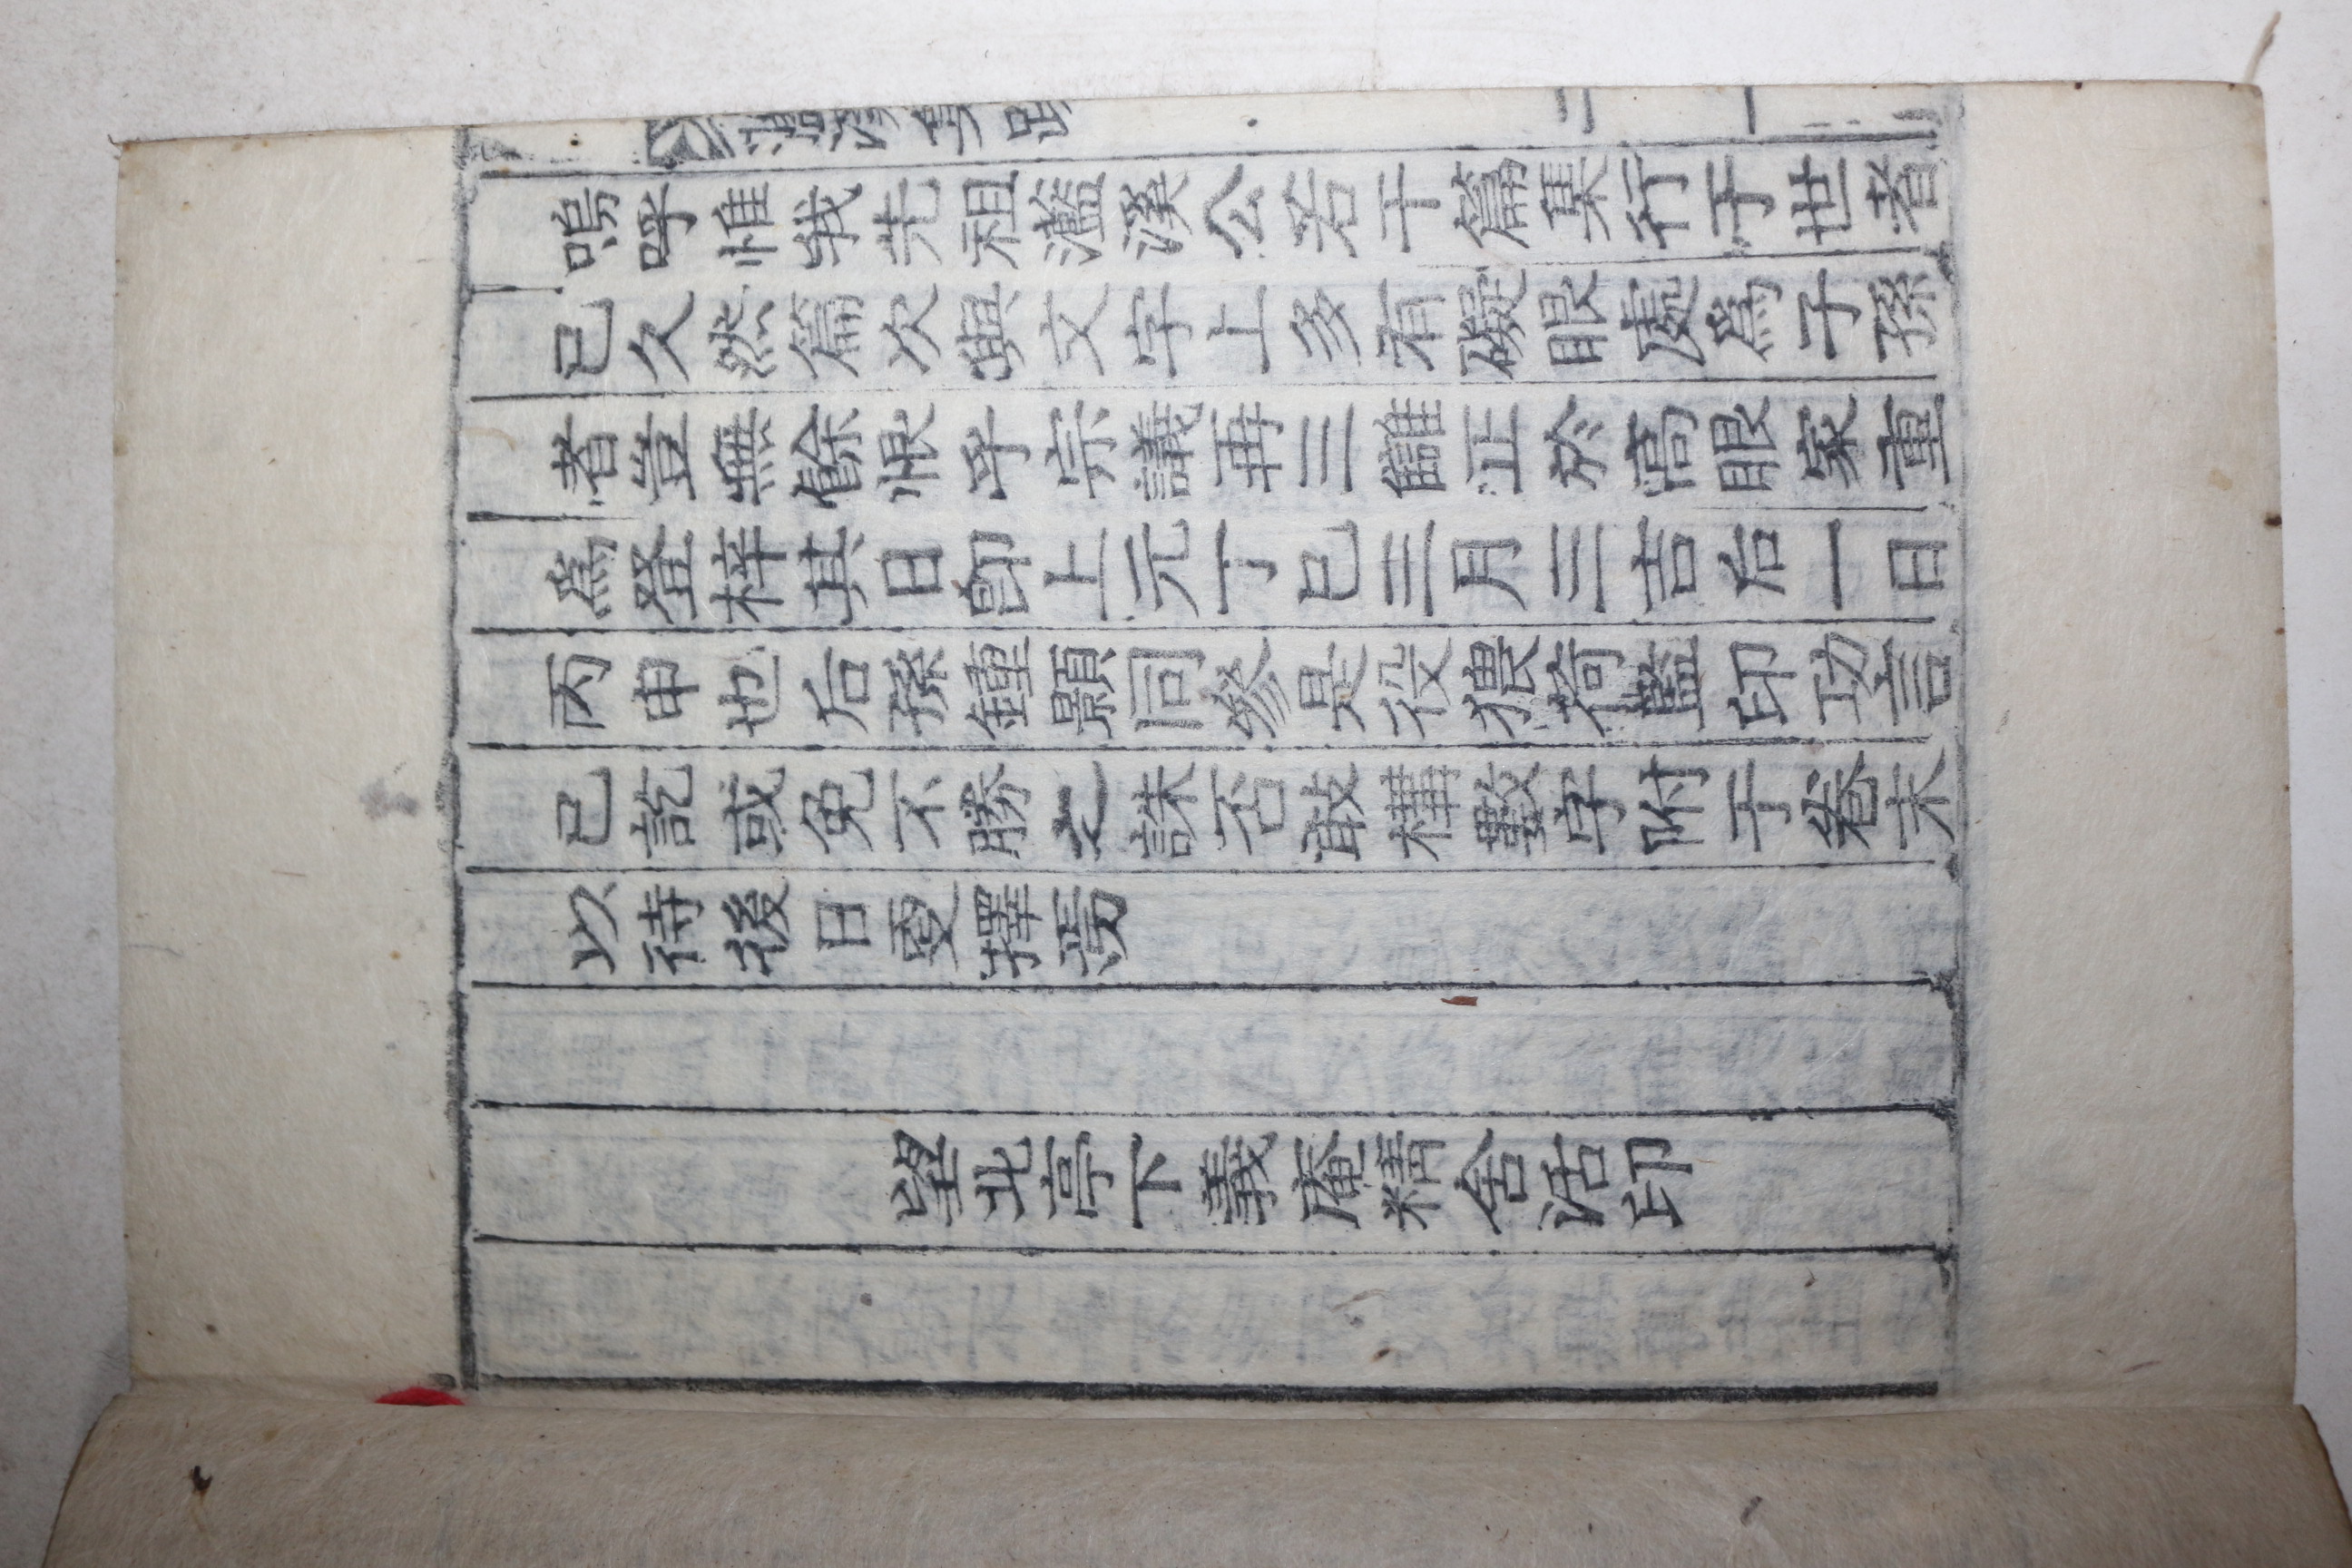 嗚呼惟我先祖灆溪公若干篇集行于世者
已久然篇次與文字上多有礙眼處爲子孫
者豈無餘恨乎宗議再三讎正於高眼家重
爲登梓其日卽上元丁巳三月三吉后一日
丙申也后孫鍾顯同參是役猥荷監印功言
已訖或免不勝之誅否敢構數字附于卷末
以待後日更擇焉
望北亭下義庵精舍活印